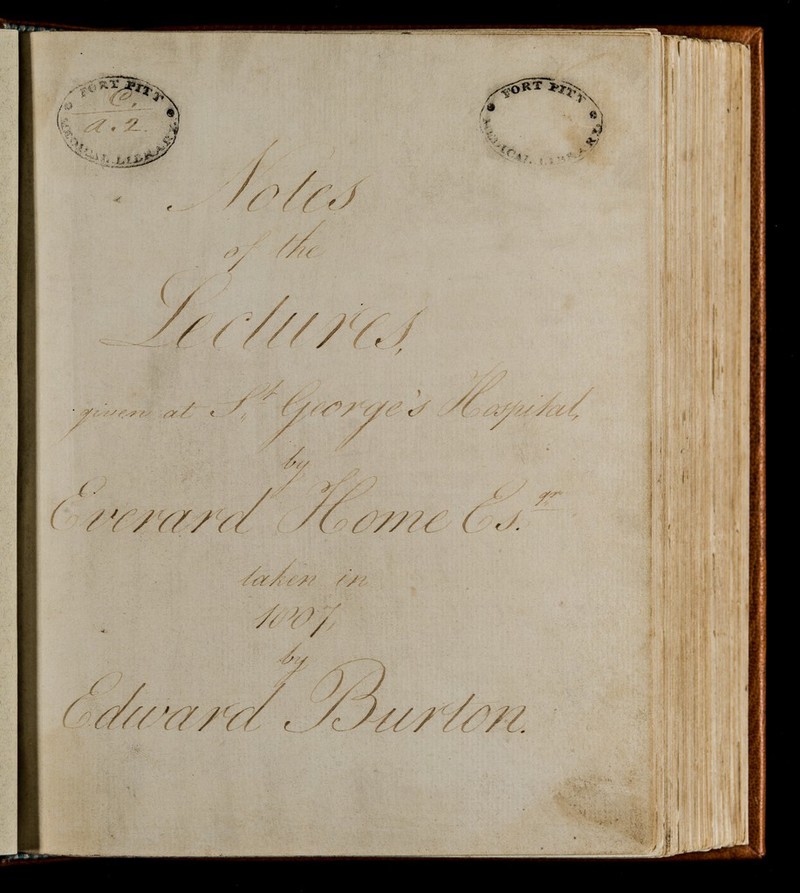 FORT PITT
MEDICAL LIBRARY
C.
a.2.
FORT PITT
MEDICAL LIBRARY
Notes
of the
Lectures,
given at St. George's Hospital,
by
Everard Home Esqr.
taken in
1807,
by
Edward Burton.